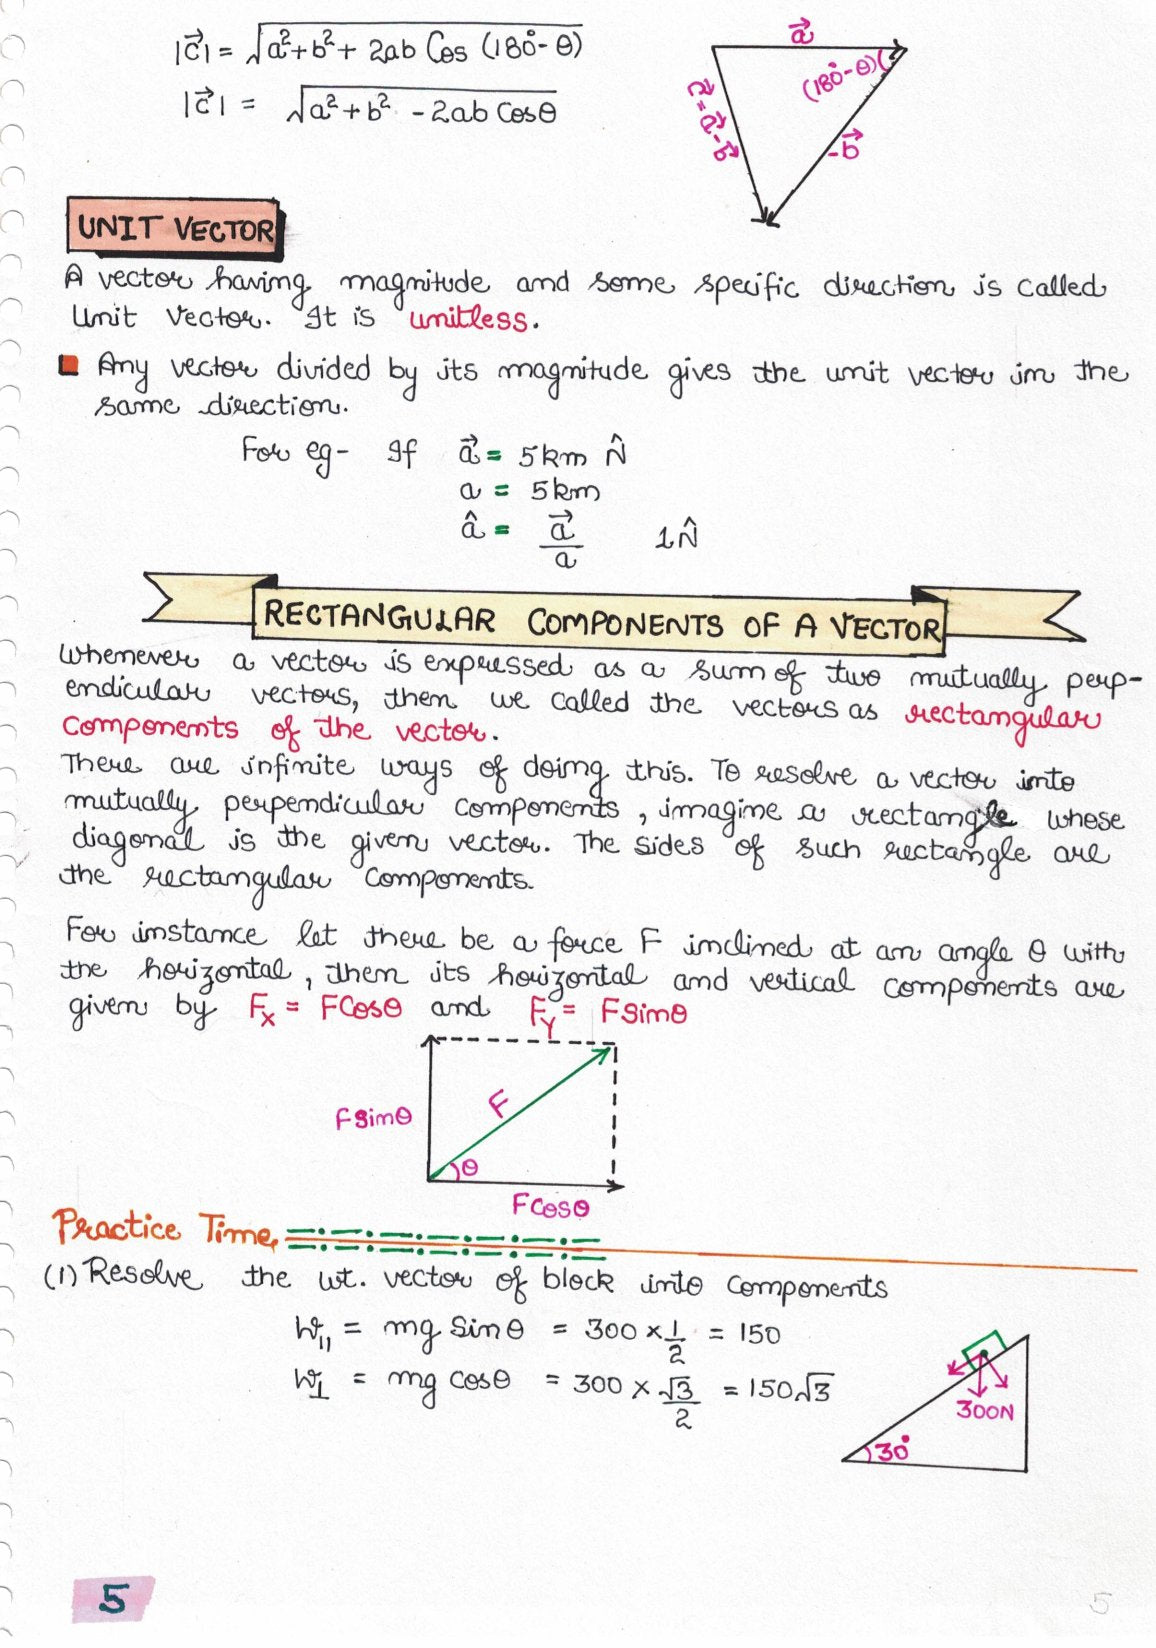 |c⃗| = √(a²+b²+ 2ab Cos (180°- θ))
|c⃗| = √(a²+b² - 2ab Cosθ)
a⃗
(180°-θ)
c⃗ = a⃗ - b⃗
-b⃗
UNIT VECTOR
A vector having magnitude and some specific direction is called
Unit Vector. It is unitless.
Any vector divided by its magnitude gives the unit vector in the
same direction.
For eg- If a⃗ = 5km N̂
a = 5km
â = a⃗/a 1N̂
RECTANGULAR COMPONENTS OF A VECTOR
Whenever a vector is expressed as a sum of two mutually perp-
endicular vectors, then we called the vectors as rectangular
Components of the vector.
There are infinite ways of doing this. To resolve a vector into
mutually perpendicular components, imagine a rectangle whose
diagonal is the given vector. The sides of such rectangle are
the rectangular components.
For instance let there be a force F inclined at an angle θ with
the horizontal, then its horizontal and vertical components are
given by Fx = FCosθ and Fy = Fsinθ
Fsinθ
F
θ
FCosθ
Practice Time
(1) Resolve the wt. vector of block into components
W|| = mg Sinθ = 300 × 1/2 = 150
W⊥ = mg cosθ = 300 × √3/2 = 150√3
300N
30°
5
5